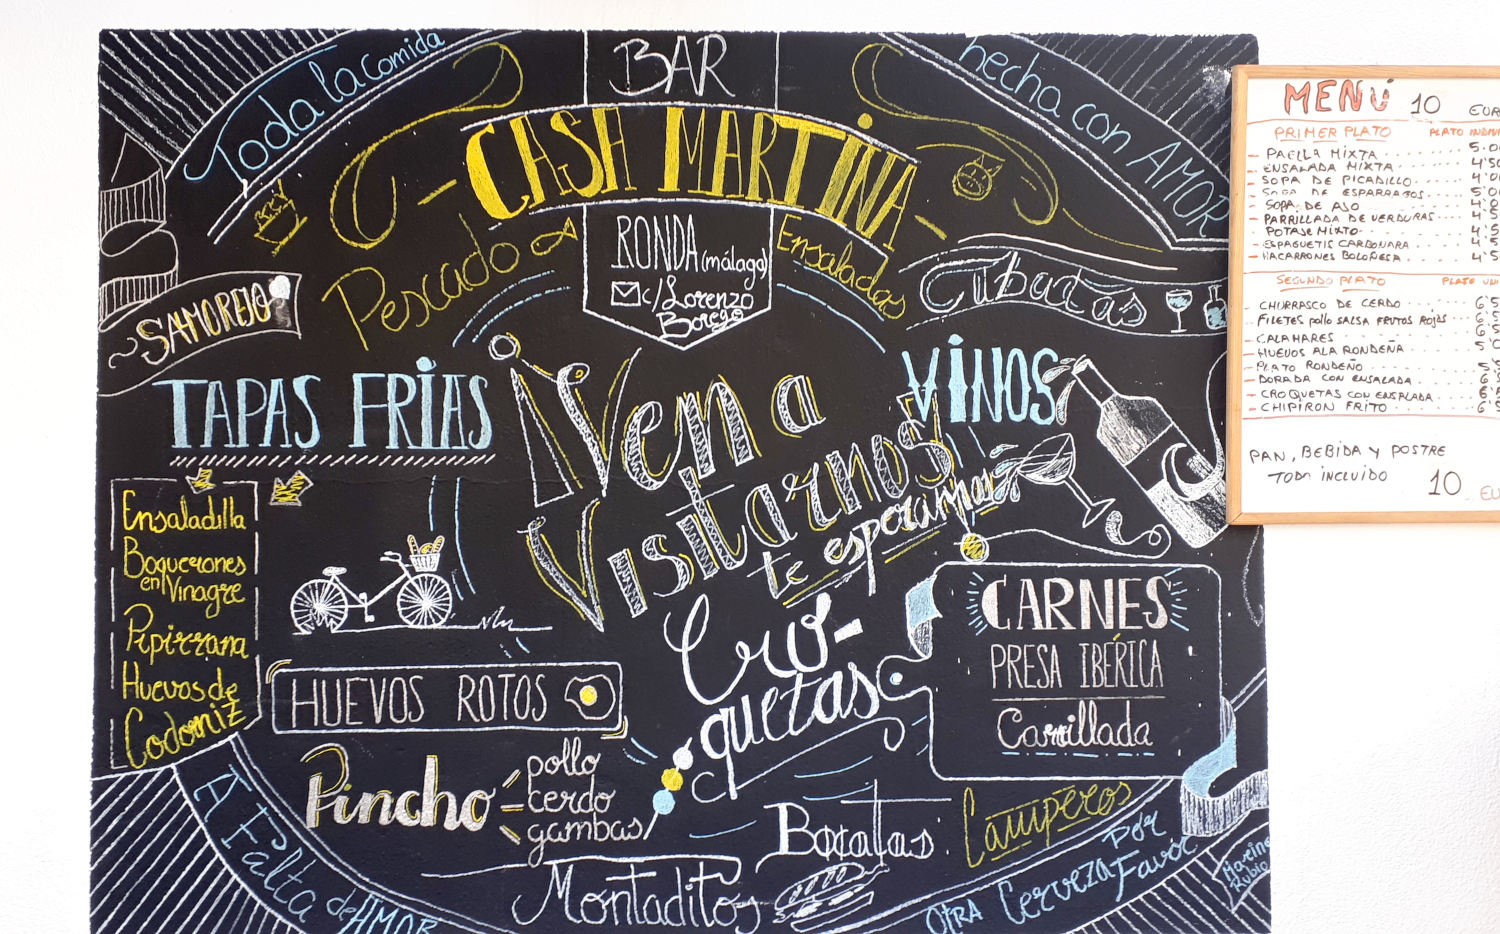 Toda la comida
BAR
hecha con AMOR
CASA MARTINA
Pescado
RONDA (málaga)
C/ Lorenzo
Borego
Ensaladas
Cubatas
SAMOREJO
TAPAS FRÍAS
¡Ven a
Visitarnos!
te esperamos
VINOS
Ensaladilla
Boquerones
en Vinagre
Pipirrana
Huevos de
Codorniz
HUEVOS ROTOS
Cro-
quetas
CARNES
PRESA IBÉRICA
Carrillada
Pincho
pollo
cerdo
gambas
Bocatas
Camperos
Montaditos
A Falta de AMOR
OTRA Cerveza Por Favor
Marina
Rubio
MENÚ 10 EUR
PRIMER PLATO PLATO INDIVI
PAELLA MIXTA 5.00
ENSALADA MIXTA 4'50
SOPA DE PICADILLO 4'0
SOPA DE ESPARRAGOS 5'0
SOPA DE AJO 4'0
PARRILLADA DE VERDURAS 4'5
POTAJE MIXTO 4'5
ESPAGUETIS CARBONARA 4'5
MACARRONES BOLOÑESA 4'5
SEGUNDO PLATO PLATO
CHURRASCO DE CERDO 6'5
FILETES pollo SALSA FRUTOS ROJOS 6'5
CALAMARES 6'5
HUEVOS A LA RONDEÑA 5'0
PLATO RONDEÑO
DORADA CON ENSALADA
CROQUETAS CON ENSALADA
CHIPIRON FRITO 6'5
PAN, BEBIDA Y POSTRE
TODO INCLUIDO 10 EU